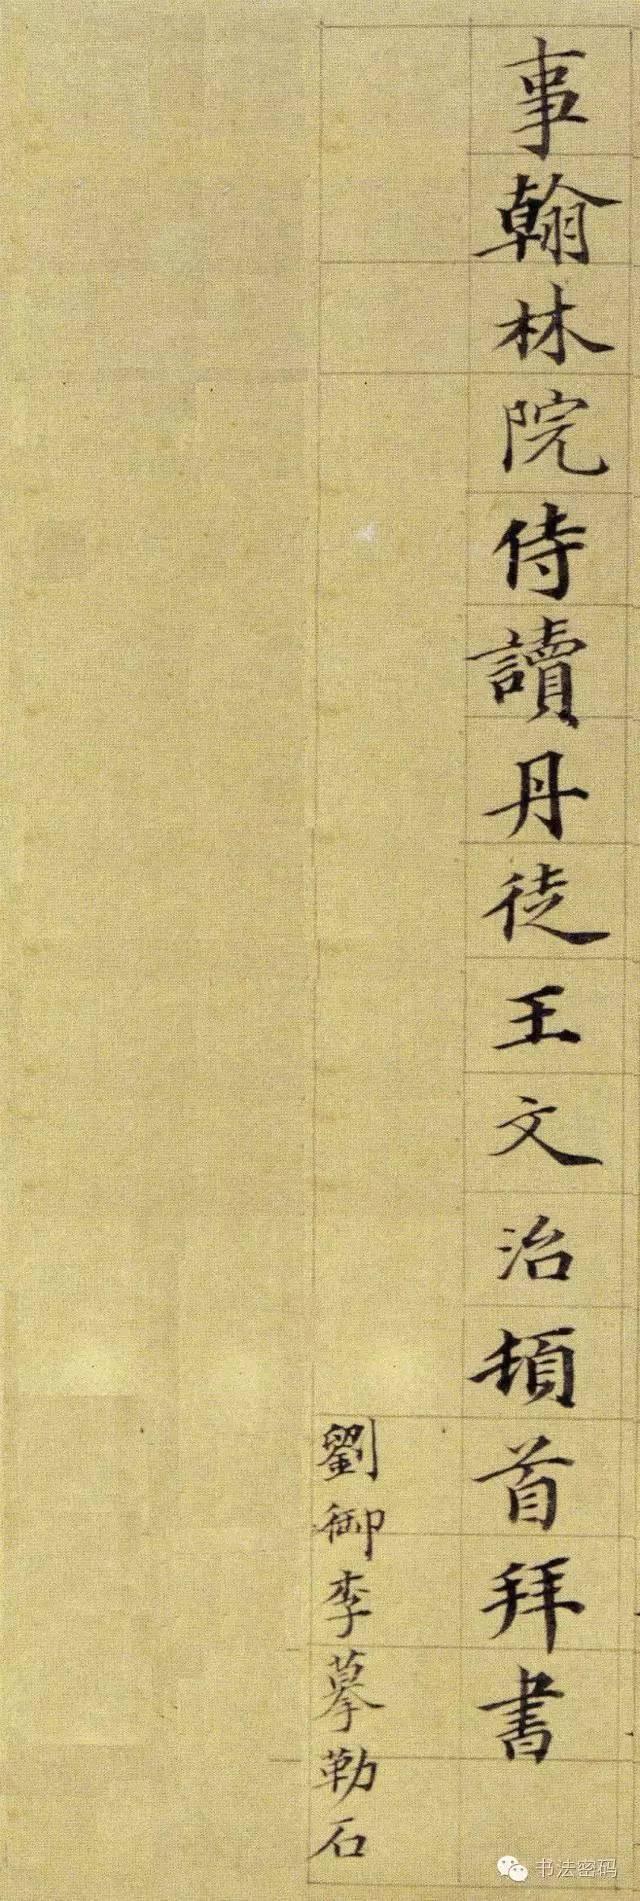 事翰林院侍讀丹徒王文治頓首拜書
劉御李摹勒石
书法密码